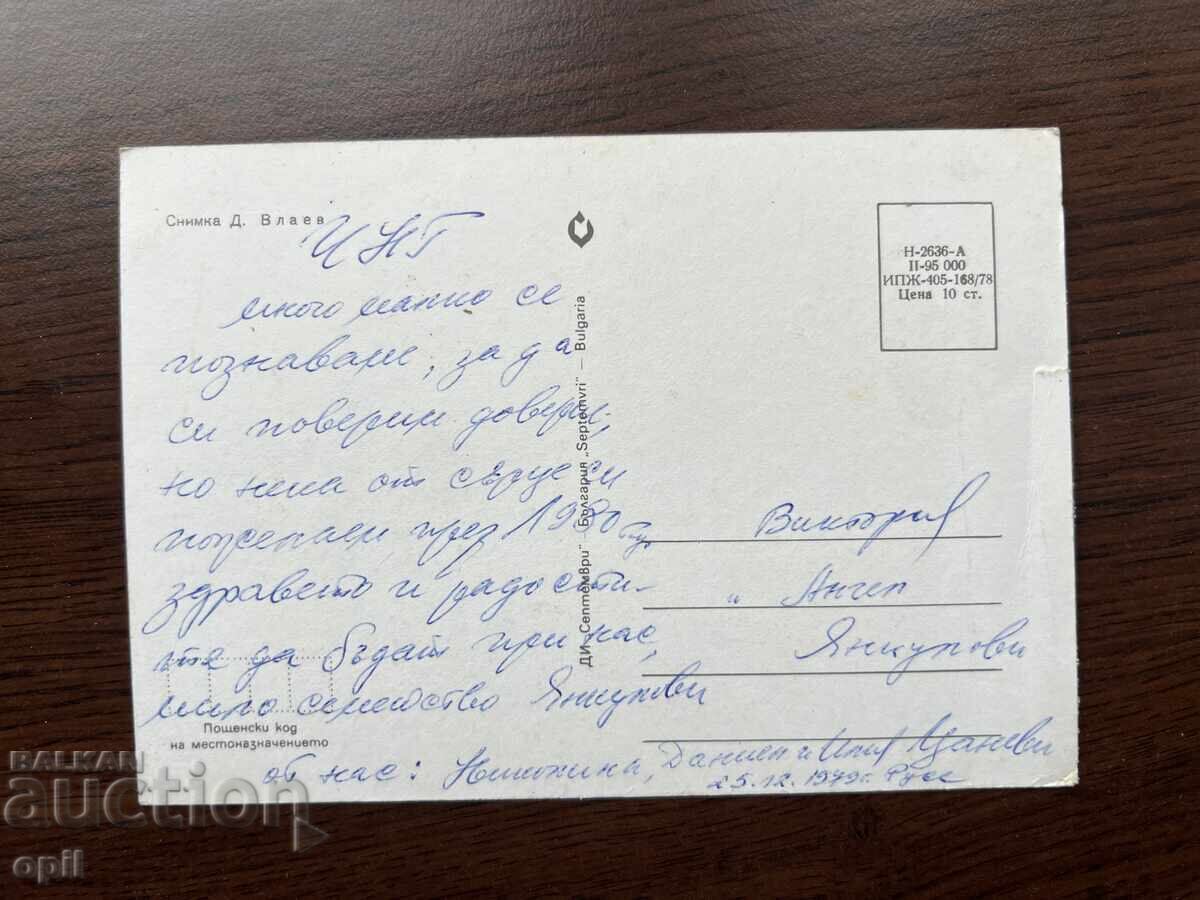 Снимка Д. Влаев
ЧНГ
много малко се
познаваме, за да
си поверим доверие,
но нека от сърце си
пожелаем през 1980 год.
здравето и радости-
те да бъдат при нас,
мило семейство Янкулови
от нас: Николина, Даниел и Илия Цаневи
25.12.1979г. Русе
Пощенски код
на местоназначението
ДИ „Септември" — България „Septemvri" — Bulgaria
Н-2636-А
II-95 000
ИПЖ-405-168/78
Цена 10 ст.
Виктория
и Ангел
Янкулови
BALKAN
auction
opil